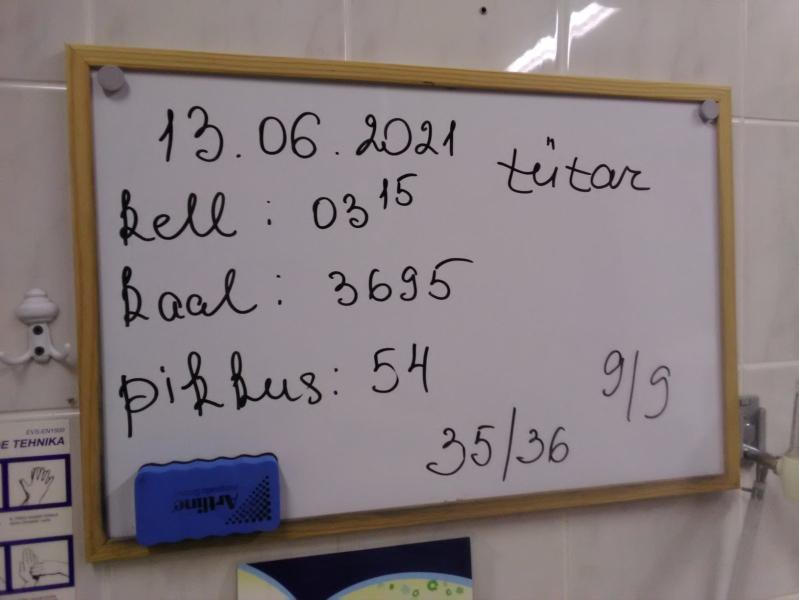 13.06.2021
tütar
kell : 03 15
kaal : 3695
pikkus: 54
9/9
35/36
Artline
EVS-EN1500
E TEHNIKA